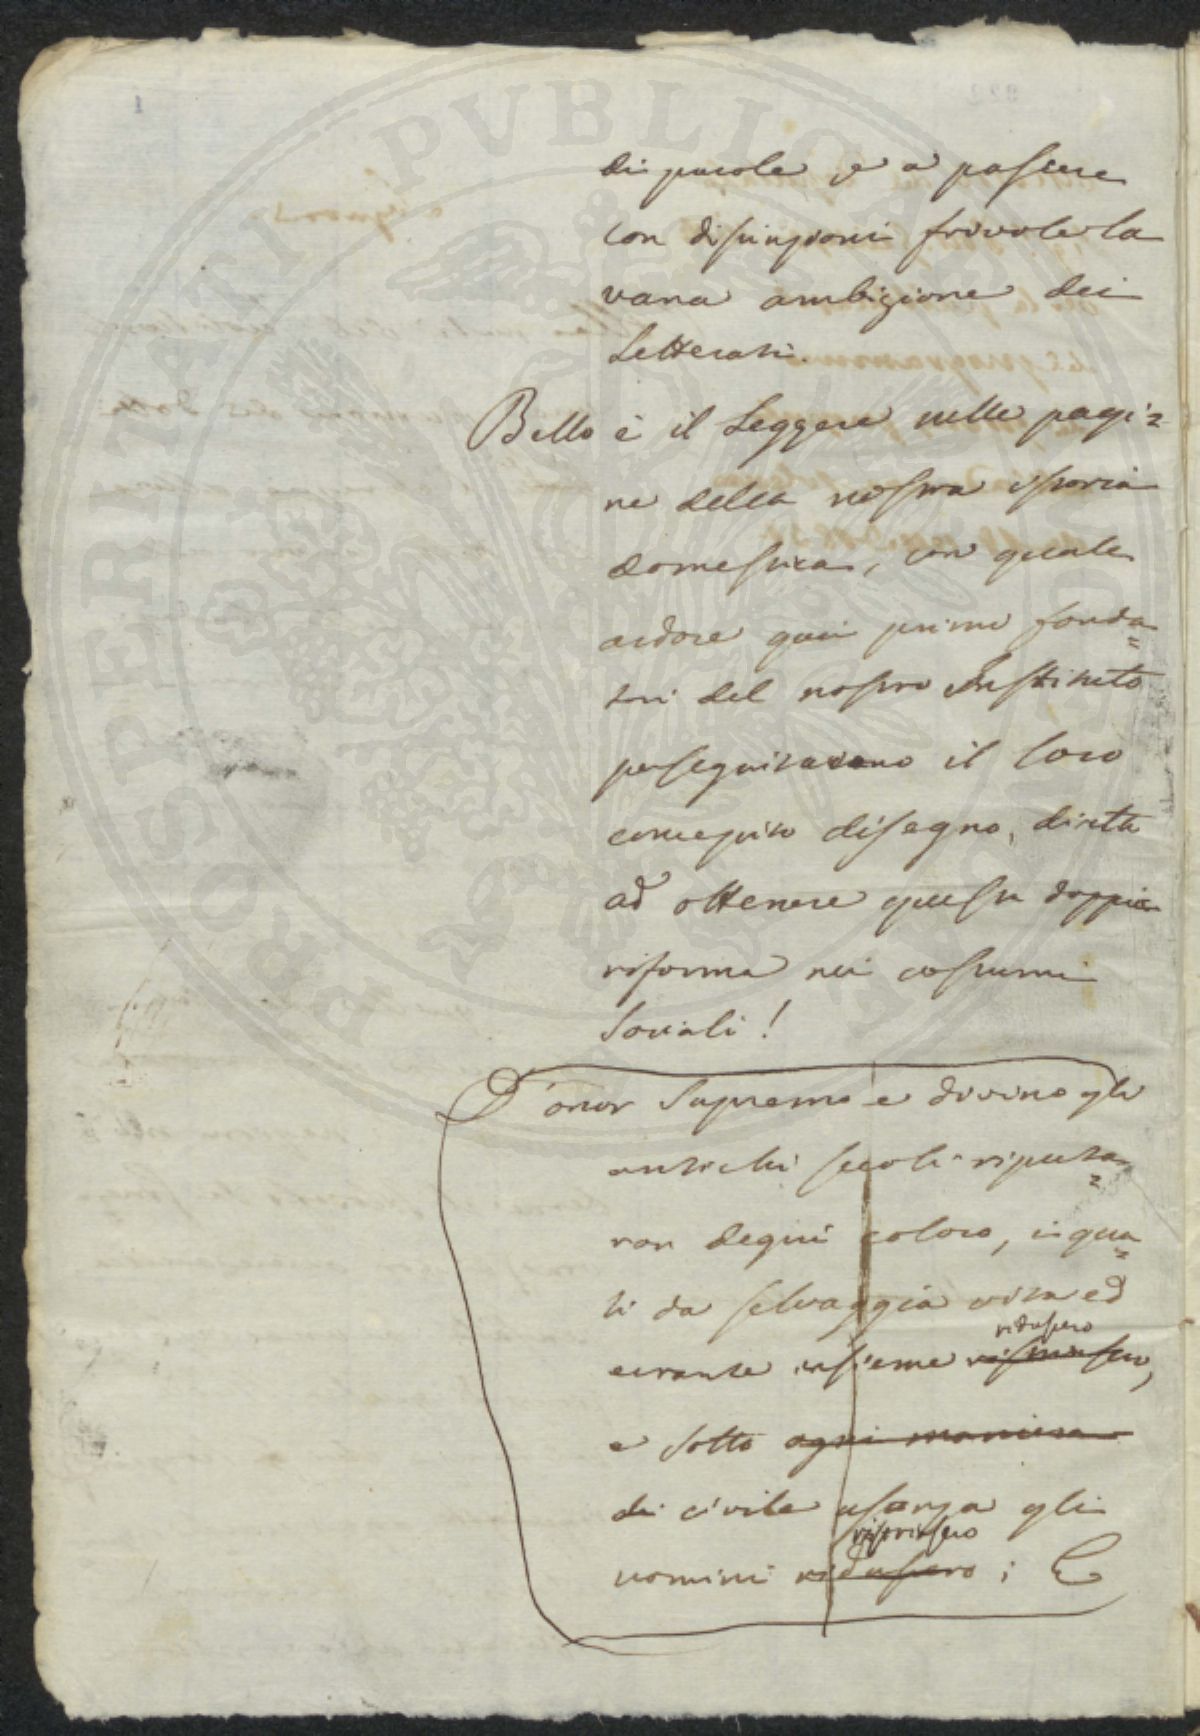 di parole e a pascere
con distinzioni frivole la
vana ambizione dei
Letterati.
Bello è il Leggere nelle pagi=
ne della nostra istoria
domestica, con quale
ardore quei primi fonda=
tori del nostro Instituto
perseguitarono il loro
concepito disegno, diretto
ad ottenere questa doppia
riforma nei costumi
Sociali!
D'onor Supremo e divino gli
antichi secoli riputa=
ron degni coloro, i qua=
li da selvaggia vita ed
ridussero
errante insieme
e sotto ogni maniera
di civile usanza gli
ristrinsero
uomini ridussero; E
PROSPERITATI PUBLICAE